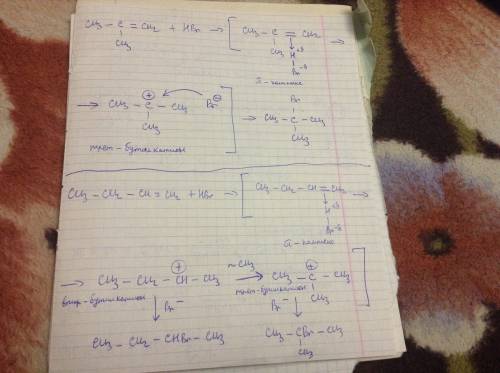 CH₃ – C = CH₂ + HBr → [ CH₃ – C = CH₂
CH₃ CH₃ H^+δ
Br^-δ →
π-комплекс
→ CH₃ – C⊕ – CH₃ Br⊖ ] → CH₃ – C – CH₃
CH₃ Br CH₃
трет-бутилкатион
CH₃ – CH₂ – CH = CH₂ + HBr → [ CH₃ – CH₂ – CH = CH₂ →
H^+δ
Br^-δ
π-комплекс
→ CH₃ – CH₂ – CH⊕ – CH₃ ~CH₃ → CH₃ – C⊕ – CH₃ ]
CH₃
втор-бутилкатион трет-бутилкатион
↓ Br⁻ Br⁻ ↓
CH₃ – CH₂ – CHBr – CH₃ CH₃ – CBr – CH₃
CH₃